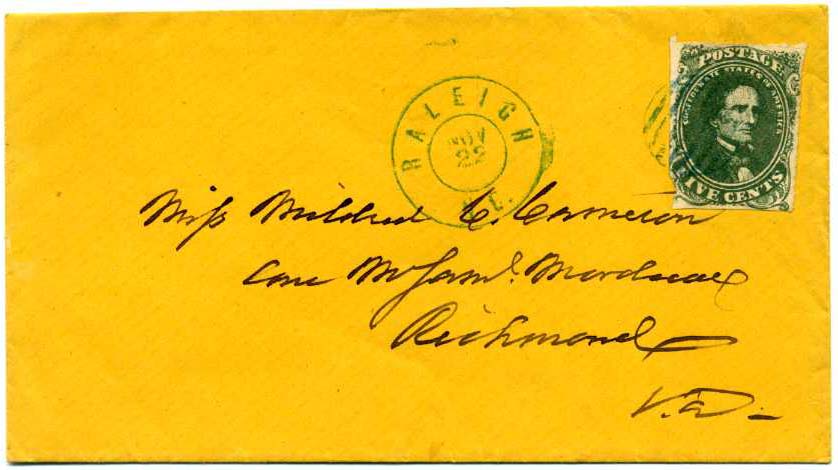 POSTAGE
CONFEDERATE STATES OF AMERICA
FIVE CENTS
RALEIGH
NOV
22
N.C.
Miss Mildred C. Cameron
Care Mr Saml. Mordecai
Richmond
Va